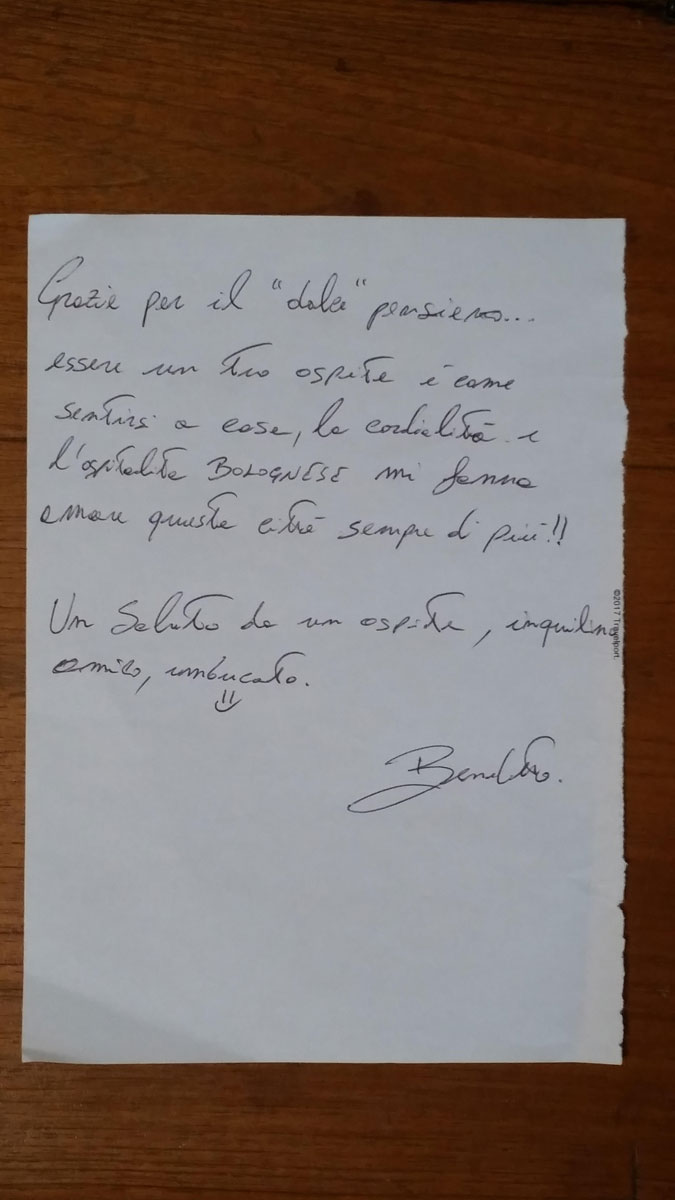 Grazie per il "dolce" pensiero...
essere un tuo ospite è come
sentirsi a casa, la cordialità e
l'ospitalità BOLOGNESE mi fanno
amare questa città sempre di più!!
Un saluto da un ospite, inquilino
amico, imbucato.
Benedetto.
©2017 Travelport.